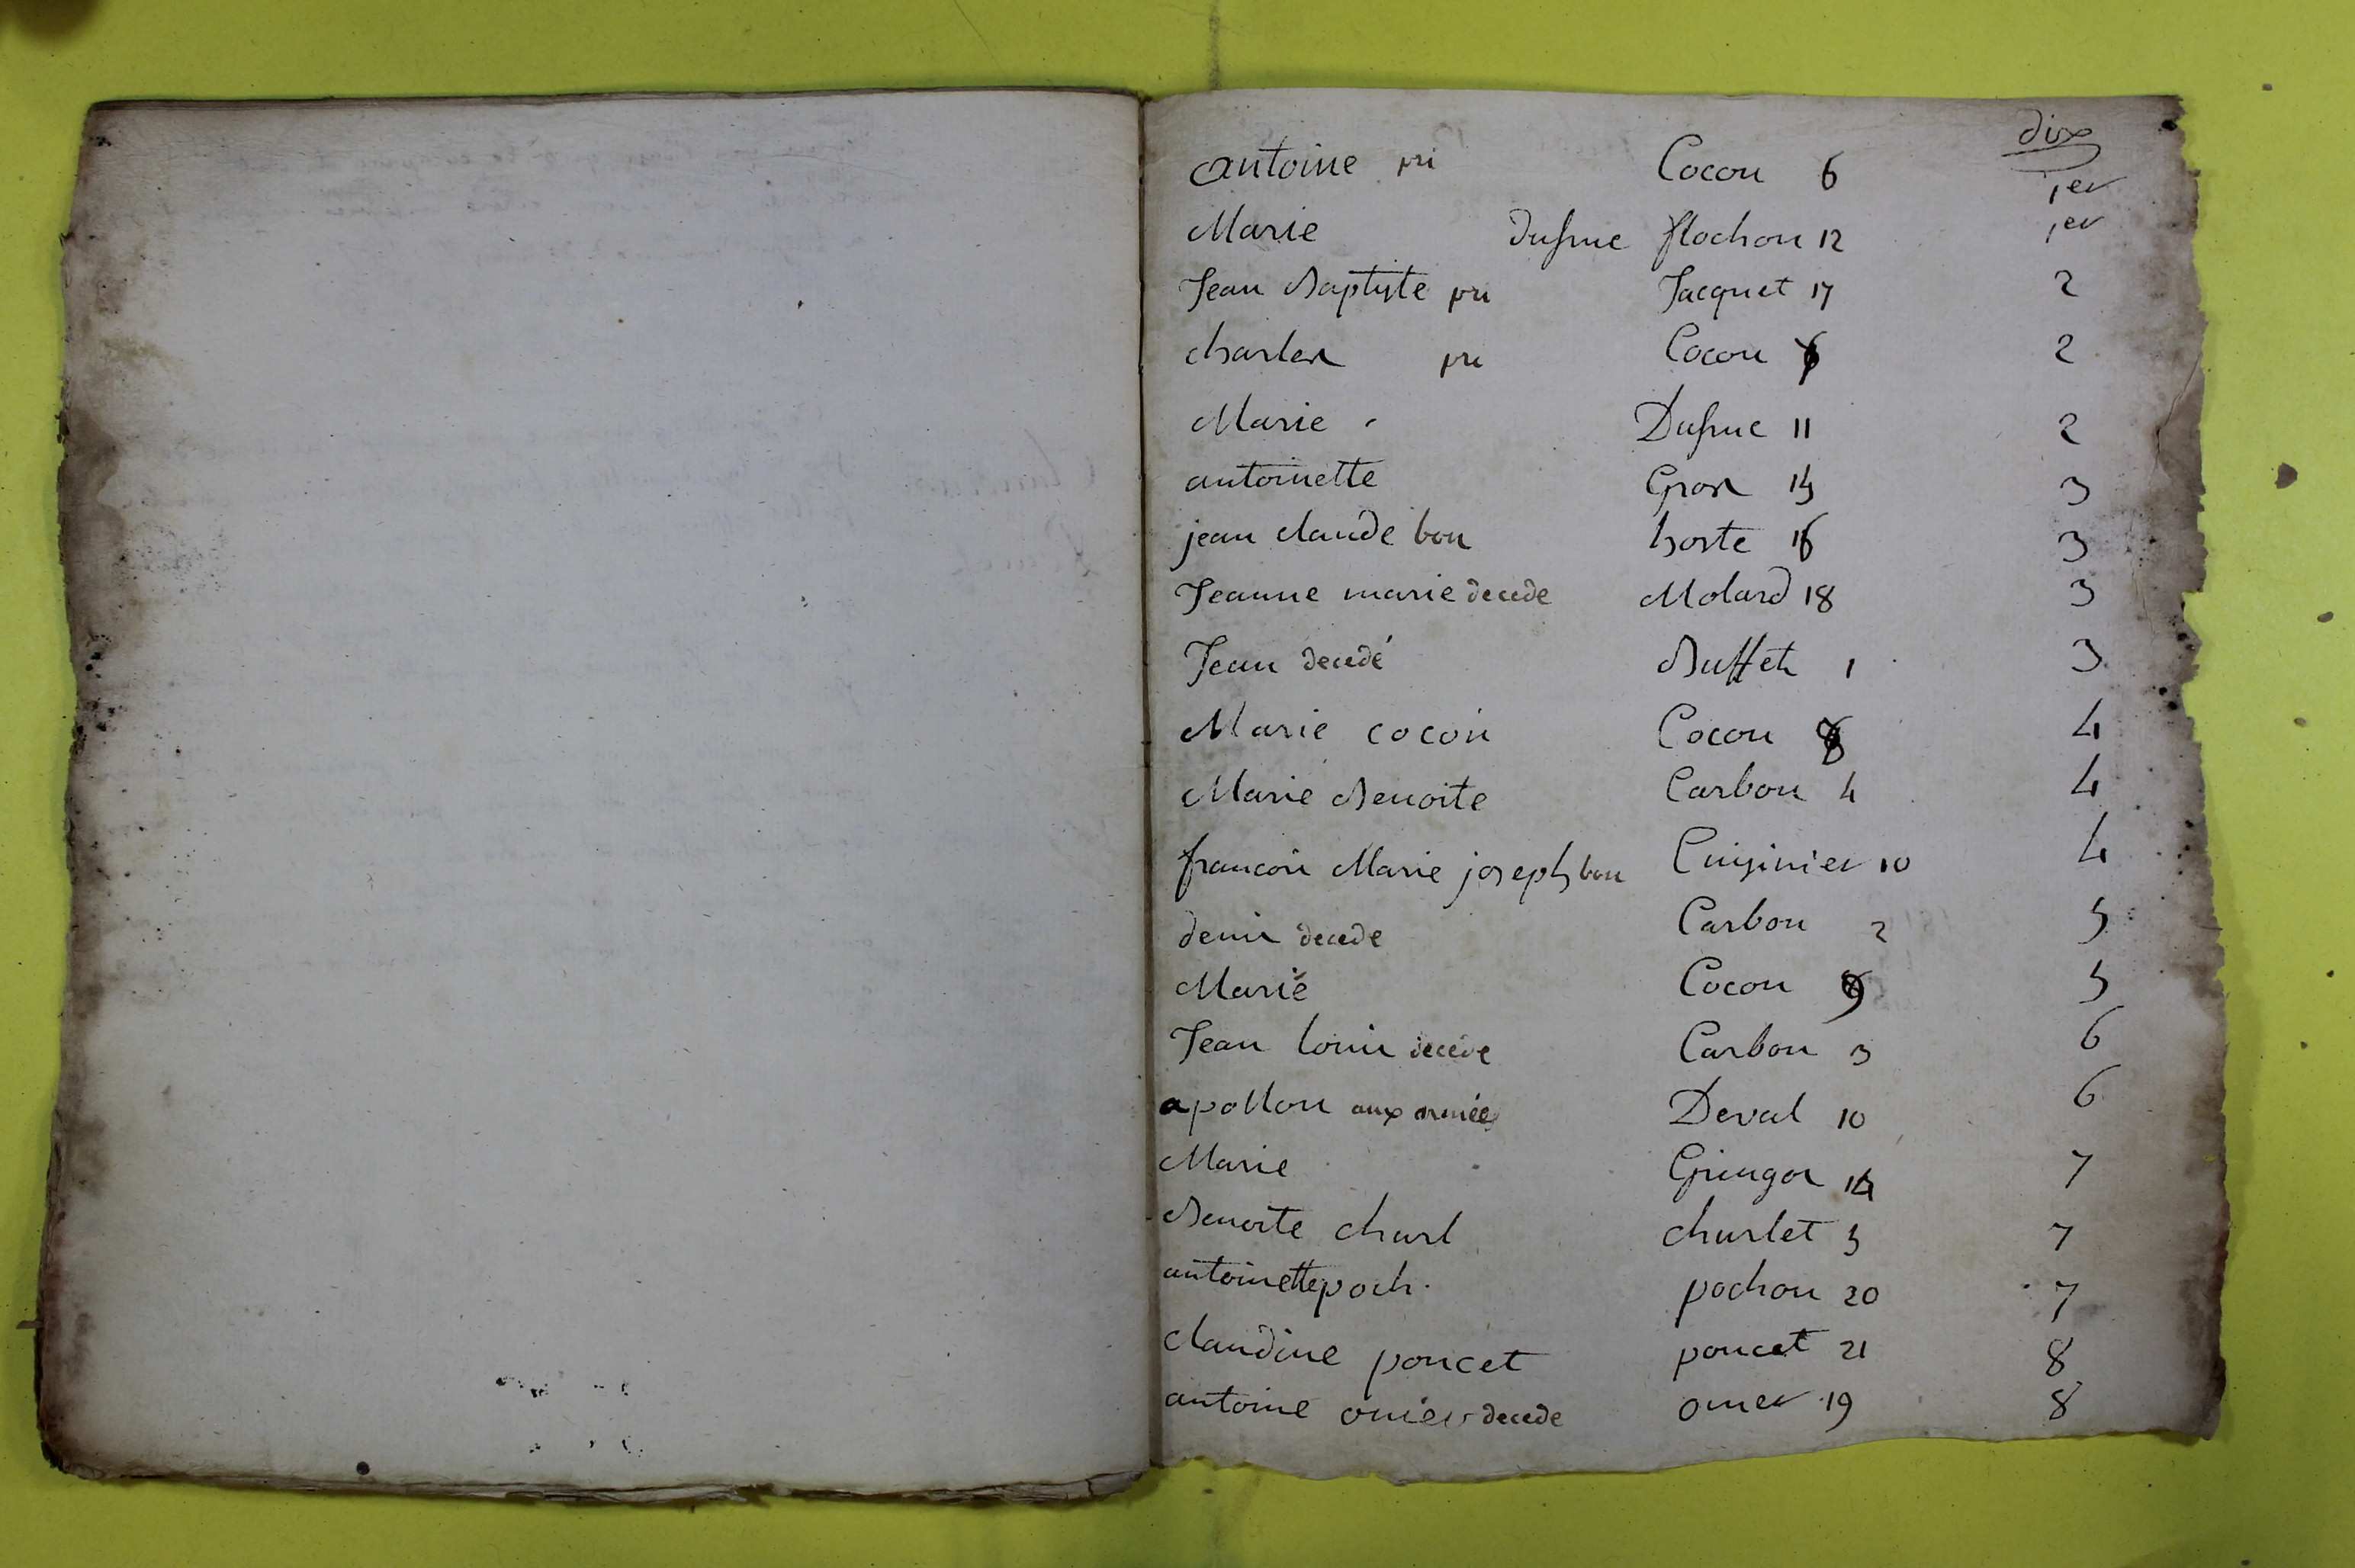 dix
antoine pri Cocon 6 1er
Marie Dufrne flochon 12 1er
Jean Baptiste pri Jacquet 17 2
charles pri Cocon 7 2
Marie Dufrne 11 2
antoinette Gros 15 3
jean claude bon hoste 16 3
Jeanne marie decede Molard 18 3
Jean decedé Buffet 1 3
Marie cocon Cocon 8 4
Marie Benoite Carbon 4 4
francois Marie joseph bon Cuisinier 10 4
denis decede Carbon 2 5
Marie Cocon 9 5
Jean louis decede Carbon 3 6
apollon aux armées Deval 10 6
Marie Gringos 14 7
Benoite charl charlet 5 7
antoinette poch. pochon 20 7
claudine poncet poncet 21 8
antoine omer decede omer 19 8